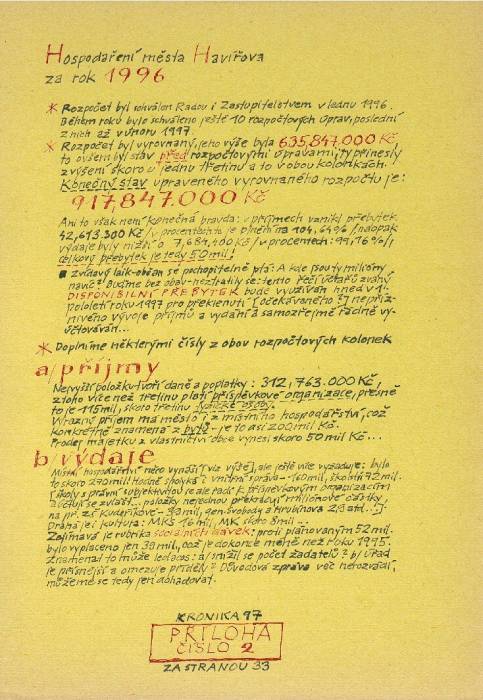 Hospodaření města Havířova
za rok 1996
* Rozpočet byl schválen Radou i Zastupitelstvem v lednu 1996.
Během roku bylo schváleno ještě 10 rozpočtových úprav, poslední
z nich až v únoru 1997.
* Rozpočet byl vyrovnaný, jeho výše byla 635,847.000 Kč,
to ovšem byl stav před rozpočtovými úpravami, ty přinesly
zvýšení skoro o jednu třetinu a to v obou kolonkách.
Konečný stav upraveného vyrovnaného rozpočtu je:
917,847.000 Kč
Ani to však není konečná pravda: v příjmech vznikl přebytek
42,613.300 Kč /v procentech to je plnění na 104,64%/ naopak
výdaje byly nižší o 7,684,400 Kč /v procentech: 99,16%/,
celkový přebytek je tedy 50 mil!
■ Zvídavý laik-občan se pochopitelně ptá: A kde jsou ty milióny
navíc? Buďme bez obav - neztratily se: tento řečí účtařů zvaný
DISPONIBILNÍ PŘEBYTEK bude využíván hned v 1.
pololetí roku 1997 pro překlenutí [očekávaného?] nepříz-
nivého vývoje příjmů a vydání a samozřejmě řádně vy-
účtováván...
* Doplníme některými čísly z obou rozpočtových kolonek
a/ příjmy
Nejvyšší položku tvoří daně a poplatky: 312,763.000 Kč,
z toho více než třetinu platí příspěvkové organizace, přesně
to je 115 mil, skoro třetinu fyzické osoby.
Výrazný příjem má město i z místního hospodářství, což
konkrétně znamená z bytů - je to asi 200 mil Kč.
Prodej majetku z vlastnictví obce vynesl skoro 50 mil Kč...
b/ výdaje
Místní hospodářství něco vynáší /viz výše/, ale ještě více vyžaduje: bylo
to skoro 270 mil! Hodně spolyká i vnitřní správa - 160 mil, školství 72 mil.
/školy s právní subjektivitou je ale řadí k příspěvkovým organizacím
a účtují se zvlášť... položky nejednou překračují miliónové částky,
na př. ZŠ Kudeříkové - 3 mil, gen. Svobody a Hrubínova
Drahá je i kultura: MKS 16 mil, MK skoro 8 mil...
Zajímavá je rubrika sociálních dávek: proti plánovaným 52 mil.
bylo vyplaceno jen 39 mil, což je dokonce méně než roku 1995.
Znamenat to může ledacos: a/ snížil se počet žadatelů? b/ úřad
je přísnější a omezuje příděly? Důvodová zpráva víc neprozradí,
můžeme se tedy jen dohadovat.
KRONIKA 97
PŘÍLOHA
ČÍSLO 2
ZA STRANOU 33